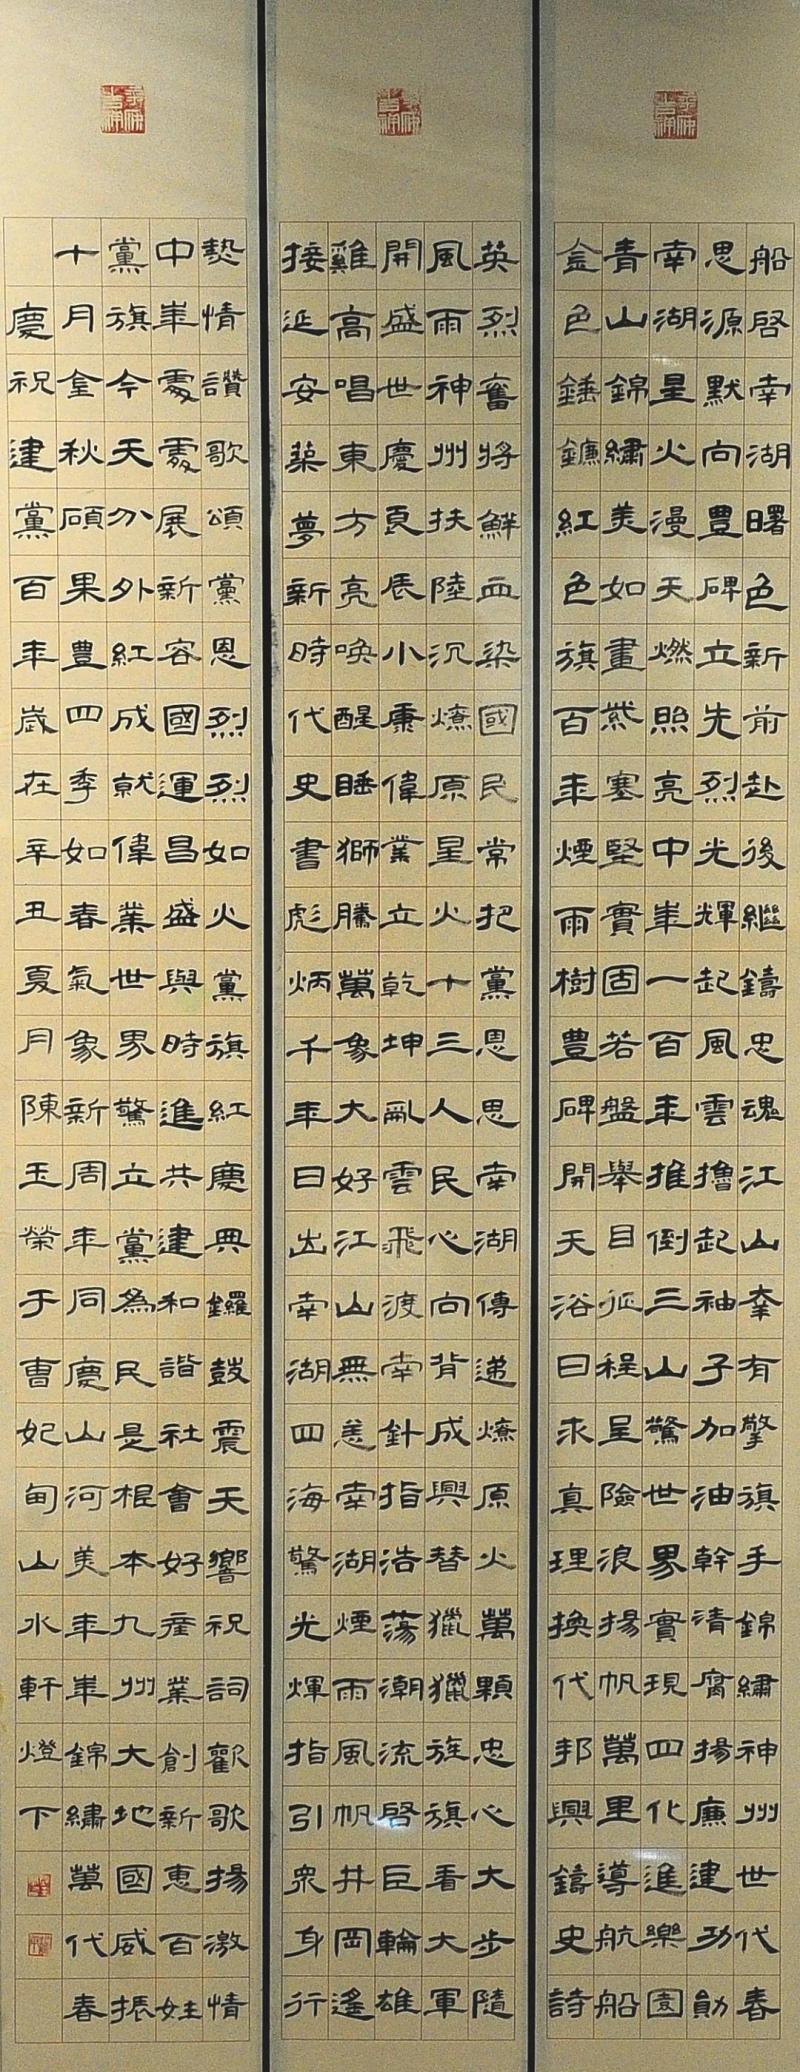 船啓南湖曙色新前赴後繼鑄忠魂江山幸有擎旗手錦繡神州世代春
思源默向豐碑立先烈光輝起風雲擼起袖子加油幹清腐揚廉建功勛
南湖星火漫天燃照亮中華一百年推倒三山驚世界實現四化進樂園
青山錦繡美如畫紫塞堅實固若盤舉目征程呈險浪揚帆萬里導航船
金色錘鐮紅色旗百年煙雨樹豐碑開天浴日求真理換代邦興鑄史詩
英烈奮將鮮血染國民常把黨恩思南湖傳遞燎原火萬顆忠心大步隨
風雨神州扶陸沉燎原星火十三人民心向背成興替獵獵旌旗看大軍
開盛世慶良辰小康偉業立乾坤亂雲飛渡南針指浩蕩潮流啓巨輪雄
雞高唱東方亮喚醒睡獅騰萬象大好江山無恙南湖煙雨風帆井岡遙
接延安築夢新時代史書彪炳千年日出南湖四海驚光煇指引衆身行
熱情讚歌頌黨恩烈烈如火黨旗紅慶典鑼鼓震天響祝詞歡歌揚激情
中華處處展新容國運昌盛與時進共建和諧社會好産業創新惠百姓
黨旗今天分外紅成就偉業世界驚立黨為民是根本九州大地國威振
十月金秋碩果豐四季如春氣象新周年同慶山河美年華錦繡萬代春
慶祝建黨百年歲在辛丑夏月陳玉榮于曹妃甸山水軒燈下